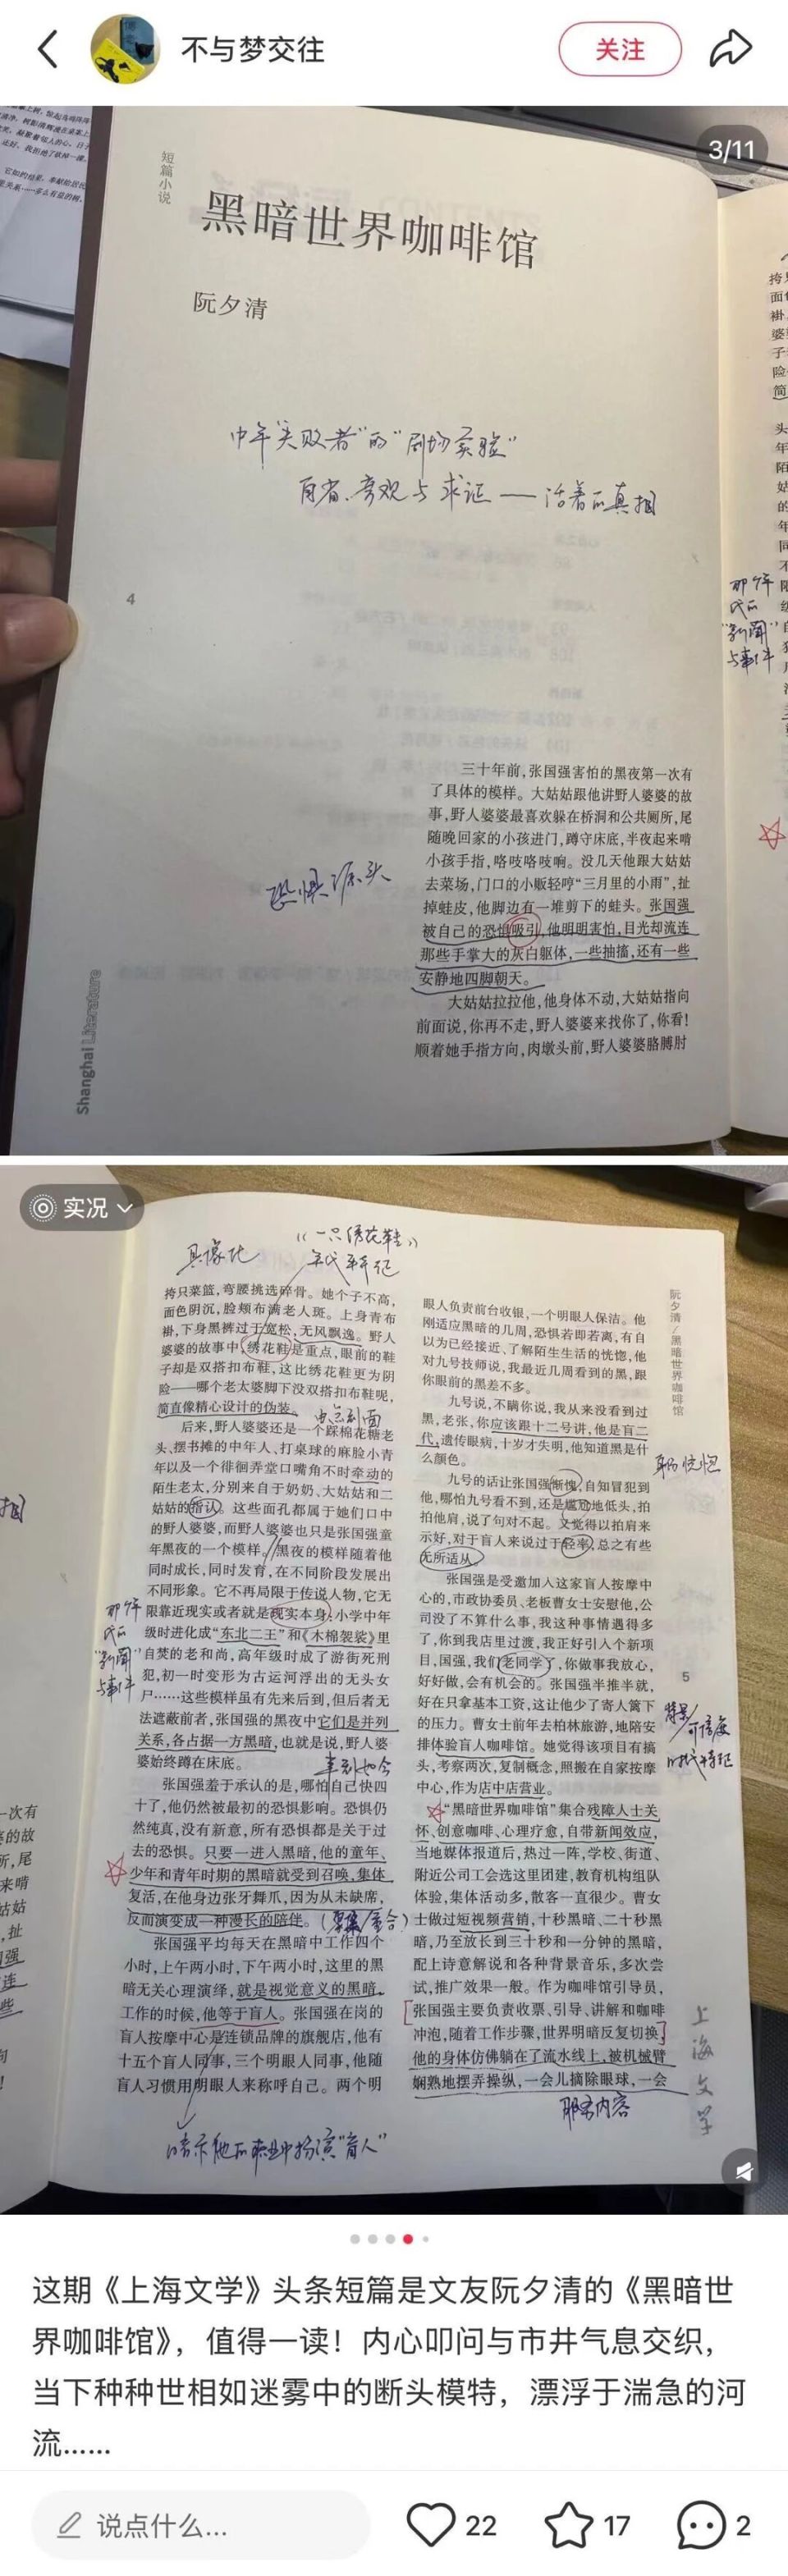 不与梦交往
关注
3/11
短篇小说
黑暗世界咖啡馆
阮夕清
中年"失败者"的"剧场实验"
自省、旁观与求证——活着的真相
4
那个年
代的
"新闻"
与事件
三十年前,张国强害怕的黑夜第一次有
了具体的模样。大姑姑跟他讲野人婆婆的故
事,野人婆婆最喜欢躲在桥洞和公共厕所,尾
随晚回家的小孩进门,蹲守床底,半夜起来啃
小孩手指,咯吱咯吱响。没几天他跟大姑姑
去菜场,门口的小贩轻哼"三月里的小雨",扯
掉蛙皮,他脚边有一堆剪下的蛙头。张国强
被自己的恐惧吸引,他明明害怕,目光却流连
那些手掌大的灰白躯体,一些抽搐,还有一些
安静地四脚朝天。
恐惧源头
大姑姑拉拉他,他身体不动,大姑姑指向
前面说,你再不走,野人婆婆来找你了,你看!
顺着她手指方向,肉墩头前,野人婆婆胳膊肘
Shanghai Literature
实况
具像化
《一只绣花鞋》
年代印记
挎只菜篮,弯腰挑选碎骨。她个子不高,
面色阴沉,脸颊布满老人斑。上身青布
褂,下身黑裤过于宽松,无风飘逸。野人
婆婆的故事中,绣花鞋是重点,眼前的鞋
子却是双搭扣布鞋,这比绣花鞋更为阴
险——哪个老太婆脚下没双搭扣布鞋呢,
简直像精心设计的伪装。
由点到面
后来,野人婆婆还是一个踩棉花糖老
头、摆书摊的中年人、打桌球的麻脸小青
年以及一个徘徊弄堂口嘴角不时牵动的
陌生老太,分别来自于奶奶、大姑姑和二
姑姑的指认。这些面孔都属于她们口中
的野人婆婆,而野人婆婆也只是张国强童
年黑夜的一个模样。黑夜的模样随着他
同时成长,同时发育,在不同阶段发展出
不同形象。它不再局限于传说人物,它无
限靠近现实或者就是现实本身:小学中年
级时进化成"东北二王"和《木棉袈裟》里
自焚的老和尚,高年级时成了游街死刑
犯,初一时变形为古运河浮出的无头女
尸……这些模样虽有先来后到,但后者无
法遮蔽前者,张国强的黑夜中它们是并列
关系,各占据一方黑暗,也就是说,野人婆
婆始终蹲在床底。
那个年
代的
"新闻"
与事件
张国强羞于承认的是,哪怕自己快四
十了,他仍然被最初的恐惧影响。恐惧仍
然纯真,没有新意,所有恐惧都是关于过
去的恐惧。只要一进入黑暗,他的童年、
少年和青年时期的黑暗就受到召唤,集体
复活,在他身边张牙舞爪,因为从未缺席,
反而演变成一种漫长的陪伴。
张国强平均每天在黑暗中工作四个
小时,上午两小时,下午两小时,这里的黑
暗无关心理演绎,就是视觉意义的黑暗。
工作的时候,他等于盲人。张国强在岗的
盲人按摩中心是连锁品牌的旗舰店,他有
十五个盲人同事,三个明眼人同事,他随
盲人习惯用明眼人来称呼自己。两个明
暗示他在生活中扮演"盲人"
阮夕清/黑暗世界咖啡馆
眼人负责前台收银,一个明眼人保洁。他
刚适应黑暗的几周,恐惧若即若离,有自
以为已经接近、了解陌生生活的恍惚,他
对九号技师说,我最近几周看到的黑,跟
你眼前的黑差不多。
九号说,不瞒你说,我从来没看到过
黑,老张,你应该跟十二号讲,他是盲二
代,遗传眼病,十岁才失明,他知道黑是什
么颜色。
九号的话让张国强惭愧,自知冒犯到
他,哪怕九号看不到,还是尴尬地低头,拍
拍他肩,说了句对不起。又觉得以拍肩来
示好,对于盲人来说过于轻率,总之有些
无所适从。
张国强是受邀加入这家盲人按摩中
心的,市政协委员、老板曹女士安慰他,公
司没了不算什么事,我这种事情遇得多
了,你到我店里过渡,我正好引入个新项
目,国强,我们老同学了,你做事我放心,
好好做,会有机会的。张国强半推半就,
好在只拿基本工资,这让他少了寄人篱下
的压力。曹女士前年去柏林旅游,地陪安
排体验盲人咖啡馆。她觉得该项目有搞
头,考察两次,复制概念,照搬在自家按摩
中心,作为店中店营业。
5
"黑暗世界咖啡馆"集合残障人士关
怀、创意咖啡、心理疗愈,自带新闻效应,
当地媒体报道后,热过一阵,学校、街道、
附近公司工会选这里团建,教育机构组队
体验,集体活动多,散客一直很少。曹女
士做过短视频营销,十秒黑暗、二十秒黑
暗,乃至放长到三十秒和一分钟的黑暗,
配上诗意解说和各种背景音乐,多次尝
试,推广效果一般。作为咖啡馆引导员,
张国强主要负责收票、引导、讲解和咖啡
冲泡,随着工作步骤,世界明暗反复切换,
他的身体仿佛躺在了流水线上,被机械臂
娴熟地摆弄操纵,一会儿摘除眼球,一会
上海文学
这期《上海文学》头条短篇是文友阮夕清的《黑暗世
界咖啡馆》,值得一读!内心叩问与市井气息交织,
当下种种世相如迷雾中的断头模特,漂浮于湍急的河
流……
说点什么...
22
17
2